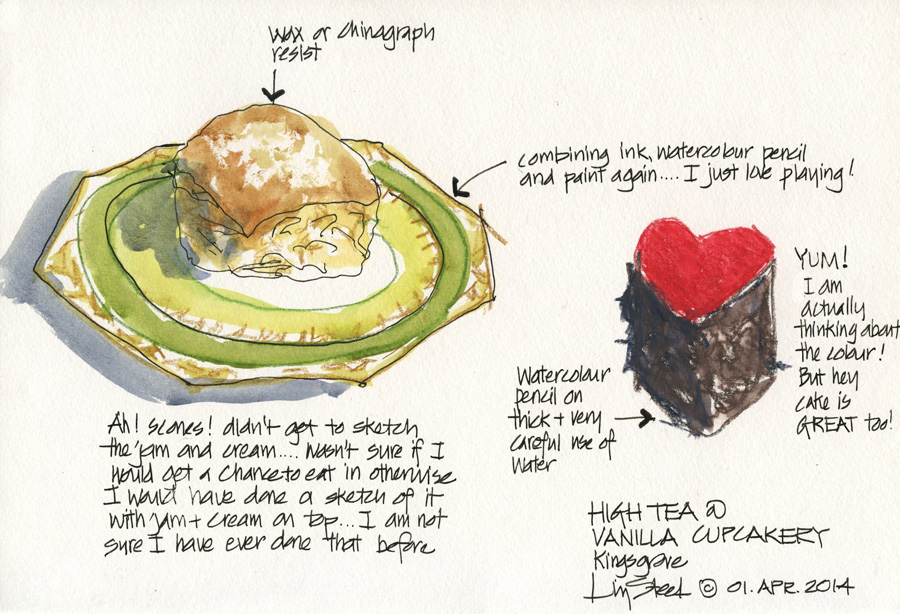 Wax or chinagraph
resist
combining ink, watercolour pencil
and paint again.... I just love playing!
YUM!
I am
actually
thinking about
the colour!
But hey
cake is
GREAT too!
Watercolour
pencil on
thick + very
careful use of
water
Ah! scones! didn't get to sketch
the jam and cream.... wasn't sure if I
would get a chance to eat in otherwise
I would have done a sketch of it
with jam + cream on top... I am not
sure I have ever done that before
HIGH TEA @
VANILLA CUPCAKERY
Kingsgrove
Liz Steel © 01.APR.2014